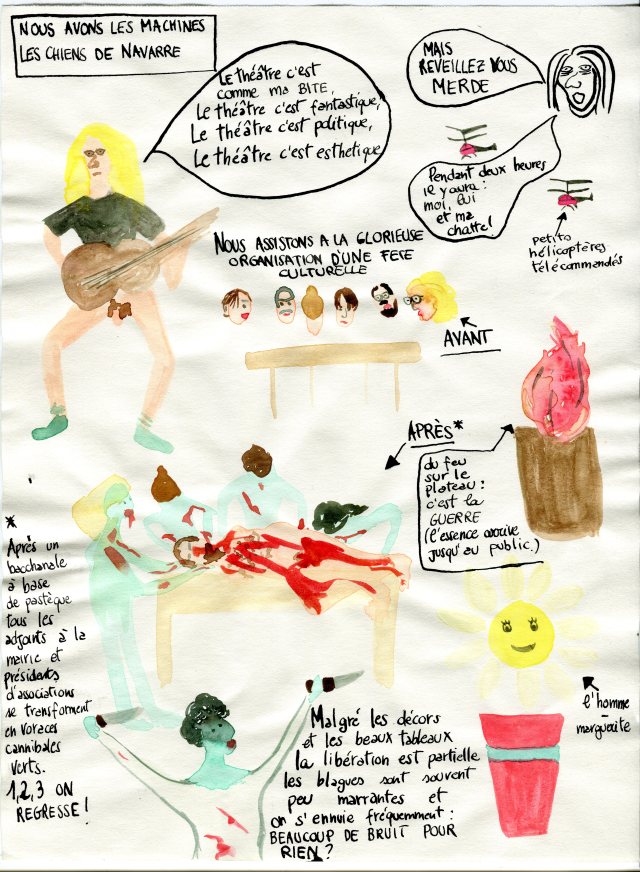 NOUS AVONS LES MACHINES
LES CHIENS DE NAVARRE
Le théâtre c'est
comme ma BITE,
Le théâtre c'est fantastique,
Le théâtre c'est politique,
Le théâtre c'est esthetique
MAIS
REVEILLEZ VOUS
MERDE
Pendant deux heures
il y aura :
moi, lui
et ma
chatte !
petits
hélicoptères
télécommandés
NOUS ASSISTONS A LA GLORIEUSE
ORGANISATION D'UNE FETE
CULTURELLE
AVANT
APRÈS*
du feu
sur le
plateau :
c'est la
GUERRE
(l'essence arrive
jusqu'au public.)
*
Après un
bacchanale
à base
de pastèque
tous les
adjoints à la
mairie et
présidents
d'associations
se transforment
en voraces
cannibales
verts.
1,2,3 ON
REGRESSE !
l'homme
-marguerite
Malgré les décors
et les beaux tableaux
la libération est partielle
les blagues sont souvent
peu marrantes et
on s'ennuie fréquemment :
BEAUCOUP DE BRUIT POUR
RIEN ?